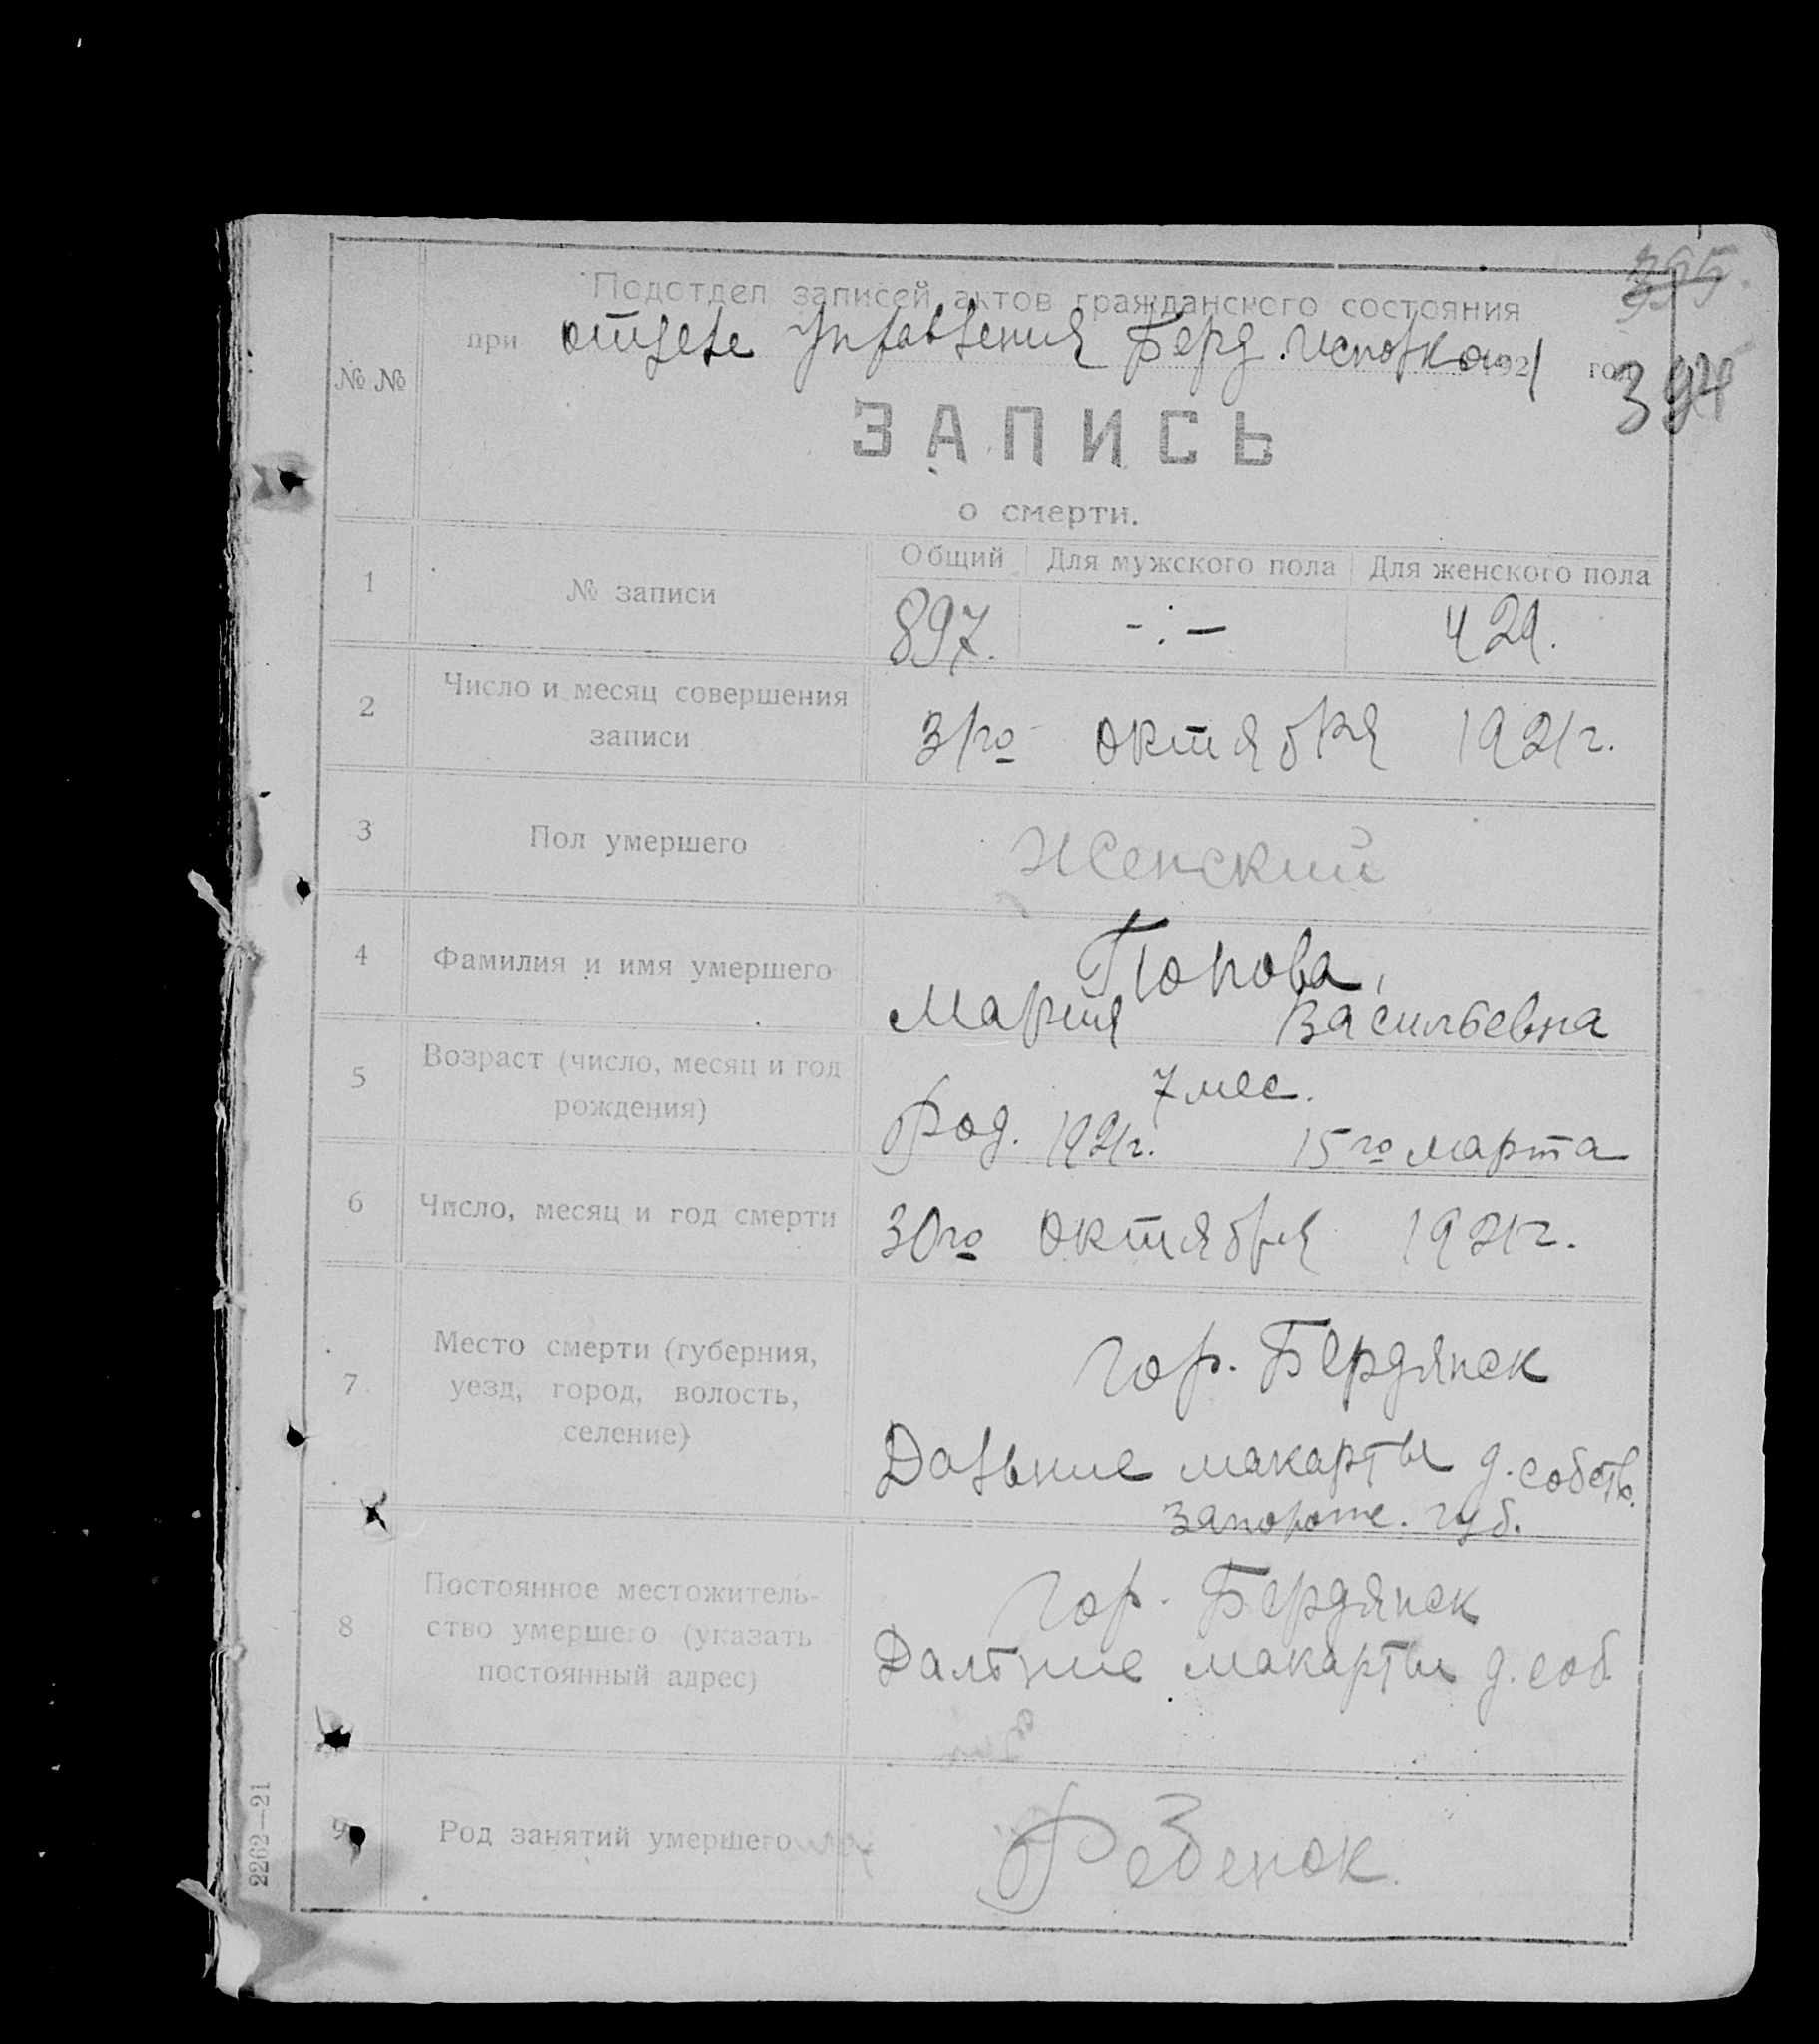 395.
394
Подотдел записей актов гражданского состояния
при отделе Управления Берд. Исполкома 1921 год
№ №
ЗАПИСЬ
о смерти.
Общий Для мужского пола Для женского пола
1 № записи 897. -:- 429.
2 Число и месяц совершения
записи
31го октября 1921г.
3 Пол умершего Женский
4 Фамилия и имя умершего
Попова,
Мария Васильевна
5 Возраст (число, месяц и год
рождения)
7 мес.
Род. 1921г. 15го марта
6 Число, месяц и год смерти 30го октября 1921г.
7 Место смерти (губерния,
уезд, город, волость,
селение)
гор. Бердянск
Дальние макорты д. собств.
Запорож. губ.
8 Постоянное местожитель-
ство умершего (указать
постоянный адрес)
Гор. Бердянск
Дальние макорты д. соб.
9 Род занятий умершего Ребенок.
2262—21